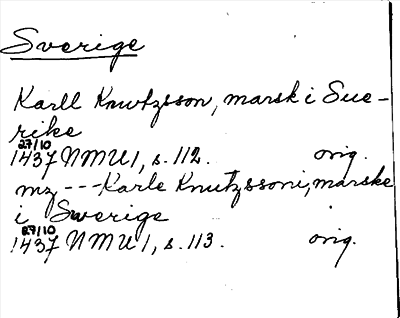 Sverige
Karll Knutzsson, marsk i Sue-
rike
27/10
1437 NMU1, s. 112. orig.
mz --- Karle Knutzssoni, marske
i Swerige
27/10
1437 NMU1, s. 113. orig.